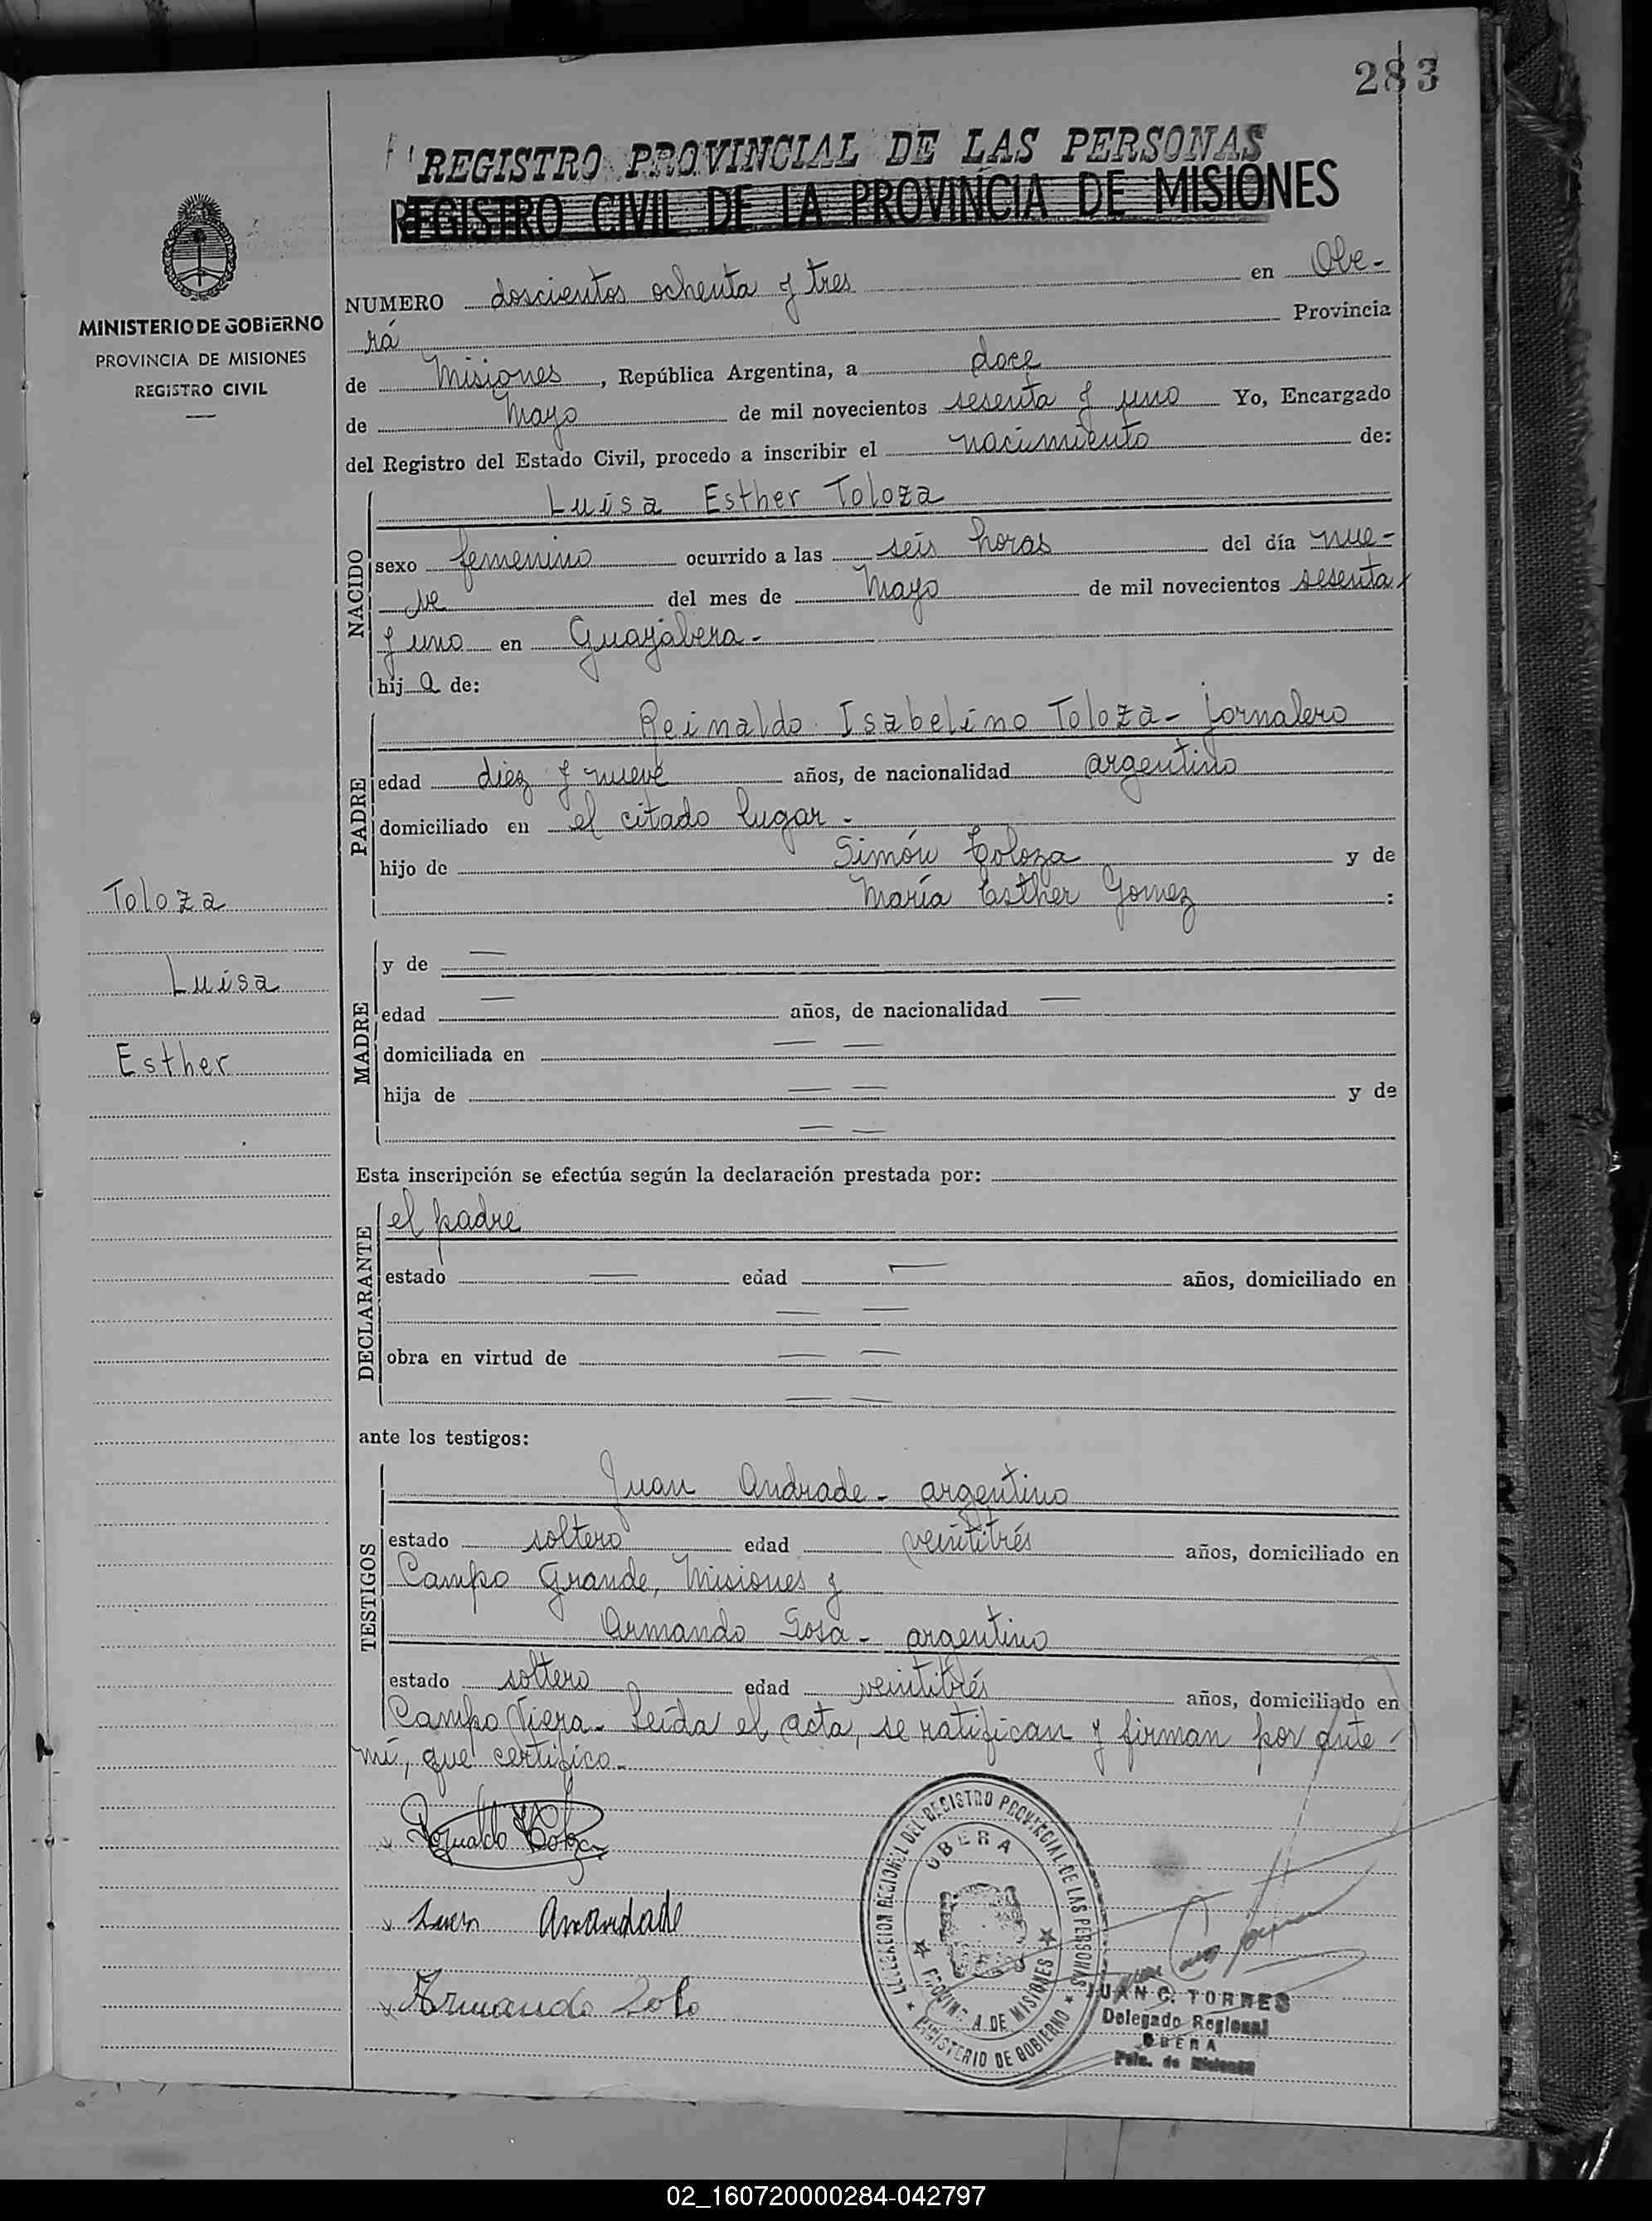 283
REGISTRO PROVINCIAL DE LAS PERSONAS
REGISTRO CIVIL DE LA PROVINCIA DE MISIONES
MINISTERIO DE GOBIERNO
PROVINCIA DE MISIONES
REGISTRO CIVIL
NUMERO doscientos ochenta y tres en Obe-
rá Provincia
de Misiones, República Argentina, a doce
de Mayo de mil novecientos sesenta y uno Yo, Encargado
del Registro del Estado Civil, procedo a inscribir el nacimiento de:
NACIDO
Luisa Esther Toloza
sexo femenino ocurrido a las seis horas del día nue-
ve del mes de Mayo de mil novecientos sesenta
y uno en Guayabera.-
hija de:
PADRE
Reinaldo Isabelino Toloza - jornalero
edad diez y nueve años, de nacionalidad argentino
domiciliado en el citado lugar.-
hijo de Simón Toloza y de
María Esther Gomez :
Toloza
Luisa
Esther
MADRE
y de —
edad — años, de nacionalidad —
domiciliada en — —
hija de — — y de
— —
Esta inscripción se efectúa según la declaración prestada por:
DECLARANTE
el padre
estado — edad — años, domiciliado en
— —
obra en virtud de — —
— —
ante los testigos:
TESTIGOS
Juan Andrade - argentino
estado soltero edad veintitrés años, domiciliado en
Campo Grande, Misiones y
Armando Sosa - argentino
estado soltero edad veintitrés años, domiciliado en
Campo Viera. Leída el acta, se ratifican y firman por ante
mí, que certifico.-
Juan Anandade
Armando
DELEGACION REGIONAL DEL REGISTRO PROVINCIAL DE LAS PERSONAS
OBERA
PROVINCIA DE MISIONES
MINISTERIO DE GOBIERNO
JUAN C. TORRES
Delegado Regional
OBERA
Pcia. de Misiones
02_160720000284-042797